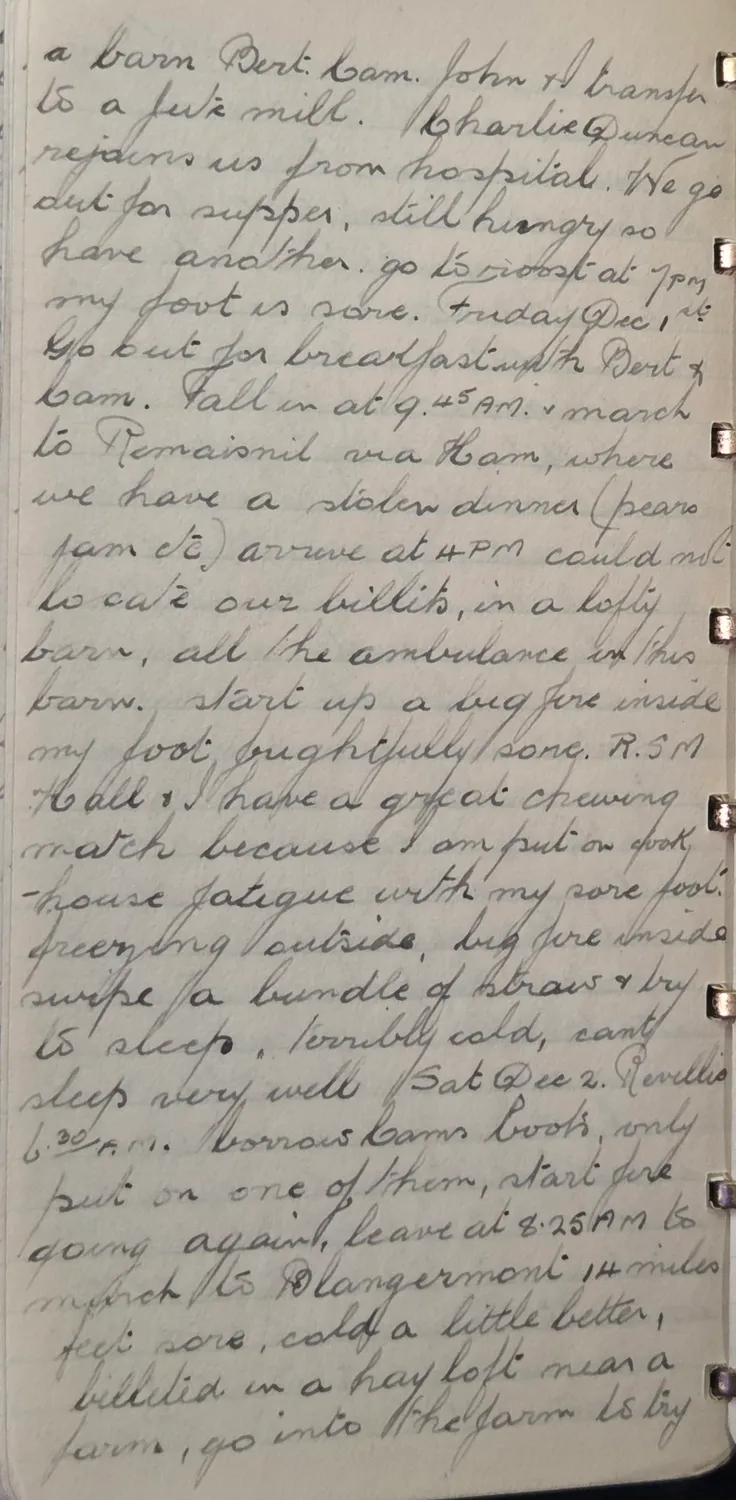 a barn Bert. Cam. John & I transfer
to a jute mill. Charlie Duncan
rejoins us from hospital. We go
out for supper, still hungry so
have another. go to roost at 7PM
my foot is sore. Friday Dec 1st
Go out for breakfast with Bert &
Cam. Fall in at 9.45 AM. & march
to Remaisnil via Ham, where
we have a stolen dinner (pears
jam etc) arrive at 4PM could not
locate our billits, in a lofty
barn, all the ambulance in this
barn. start up a big fire inside
my foot frightfully sore. R.S M
Hall & I have a great chewing
match because I am put on cook
-house fatigue with my sore foot.
freezing outside, big fire inside
swipe a bundle of straw & try
to sleep, terribly cold, cant
sleep very well Sat Dec 2. Revillie
6.30 A.M. borrow Cams boots, only
put on one of them, start fire
going again, leave at 8.25 AM to
march to Blangermont 14 miles
feet sore, cold a little better,
billeted in a hay loft near a
farm, go into the farm to try